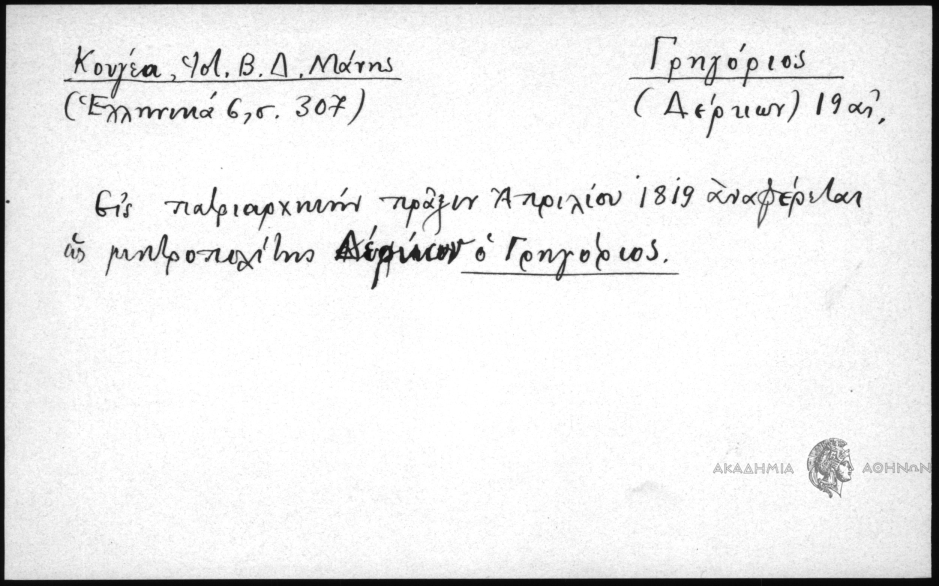 Κουγέα, Ἱστ. Β. Δ. Μάνης
(Ἑλληνικά 6, σ. 307)
Γρηγόριος
(Δέρκων) 19 αἰ.
Εἰς πατριαρχικήν πρᾶξιν Ἀπριλίου 1819 ἀναφέρεται
ὡς μητροπολίτης Δέρκων ὁ Γρηγόριος.
ΑΚΑΔΗΜΙΑ ΑΘΗΝΩΝ